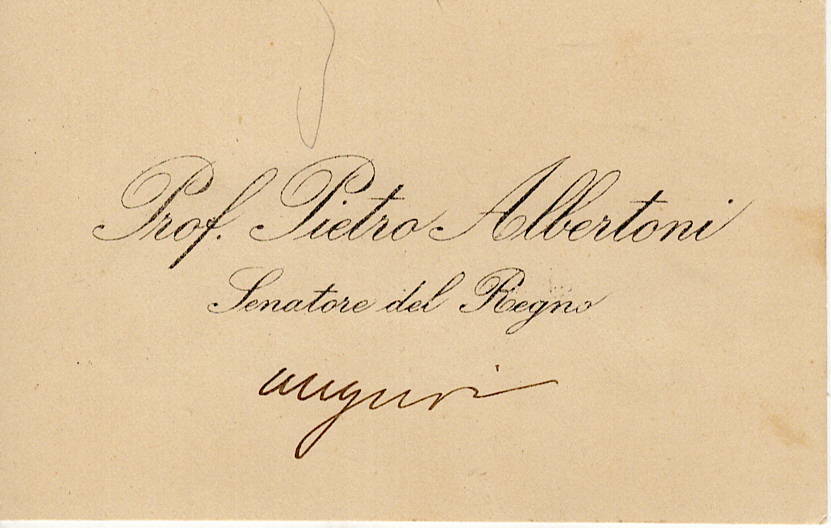 Prof. Pietro Albertoni
Senatore del Regno
auguri